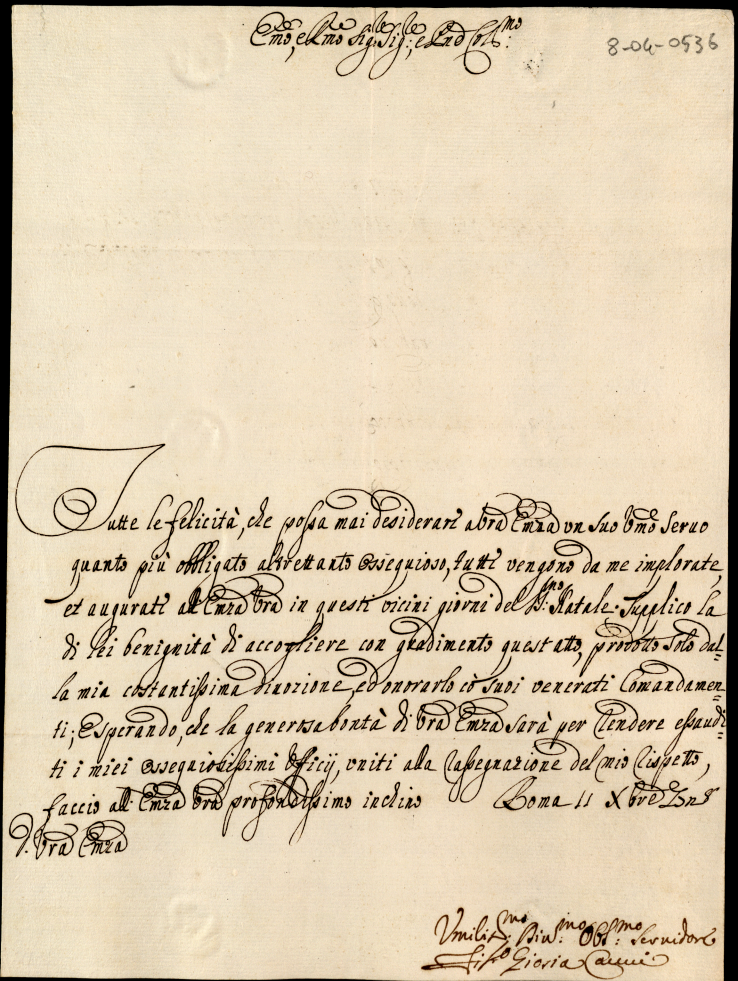 Emo, e Rmo Sig.re Sig.re, e Pnd Col.mo
8-04-0536
Tutte le felicità, che possa mai desiderare a Vra Emza un suo Vmo Seruo
quanto più obbligato altrettanto ossequioso, tutte vengono da me implorate,
et augurate all'Emza Vra in questi vicini giorni del S.mo Natale. Supplico la
di lei benignità di accogliere con gradimento quest'atto, prodotto solo dal=
la mia costantissima diuozione, ed onorarlo co' suoi venerati Comandamen=
ti; Esperando, che la generosa bontà di Vra Emza sarà per rendere essaudi=
ti i miei ossequiosissimi Officij, vniti alla rassegnazione del mio rispetto,
faccio all'Emza Vra profondissimo inchino Roma 11 Xbre
D. Vra Emza
Vmilit.mo Diu.mo Obl.mo Seruidore
Giosia